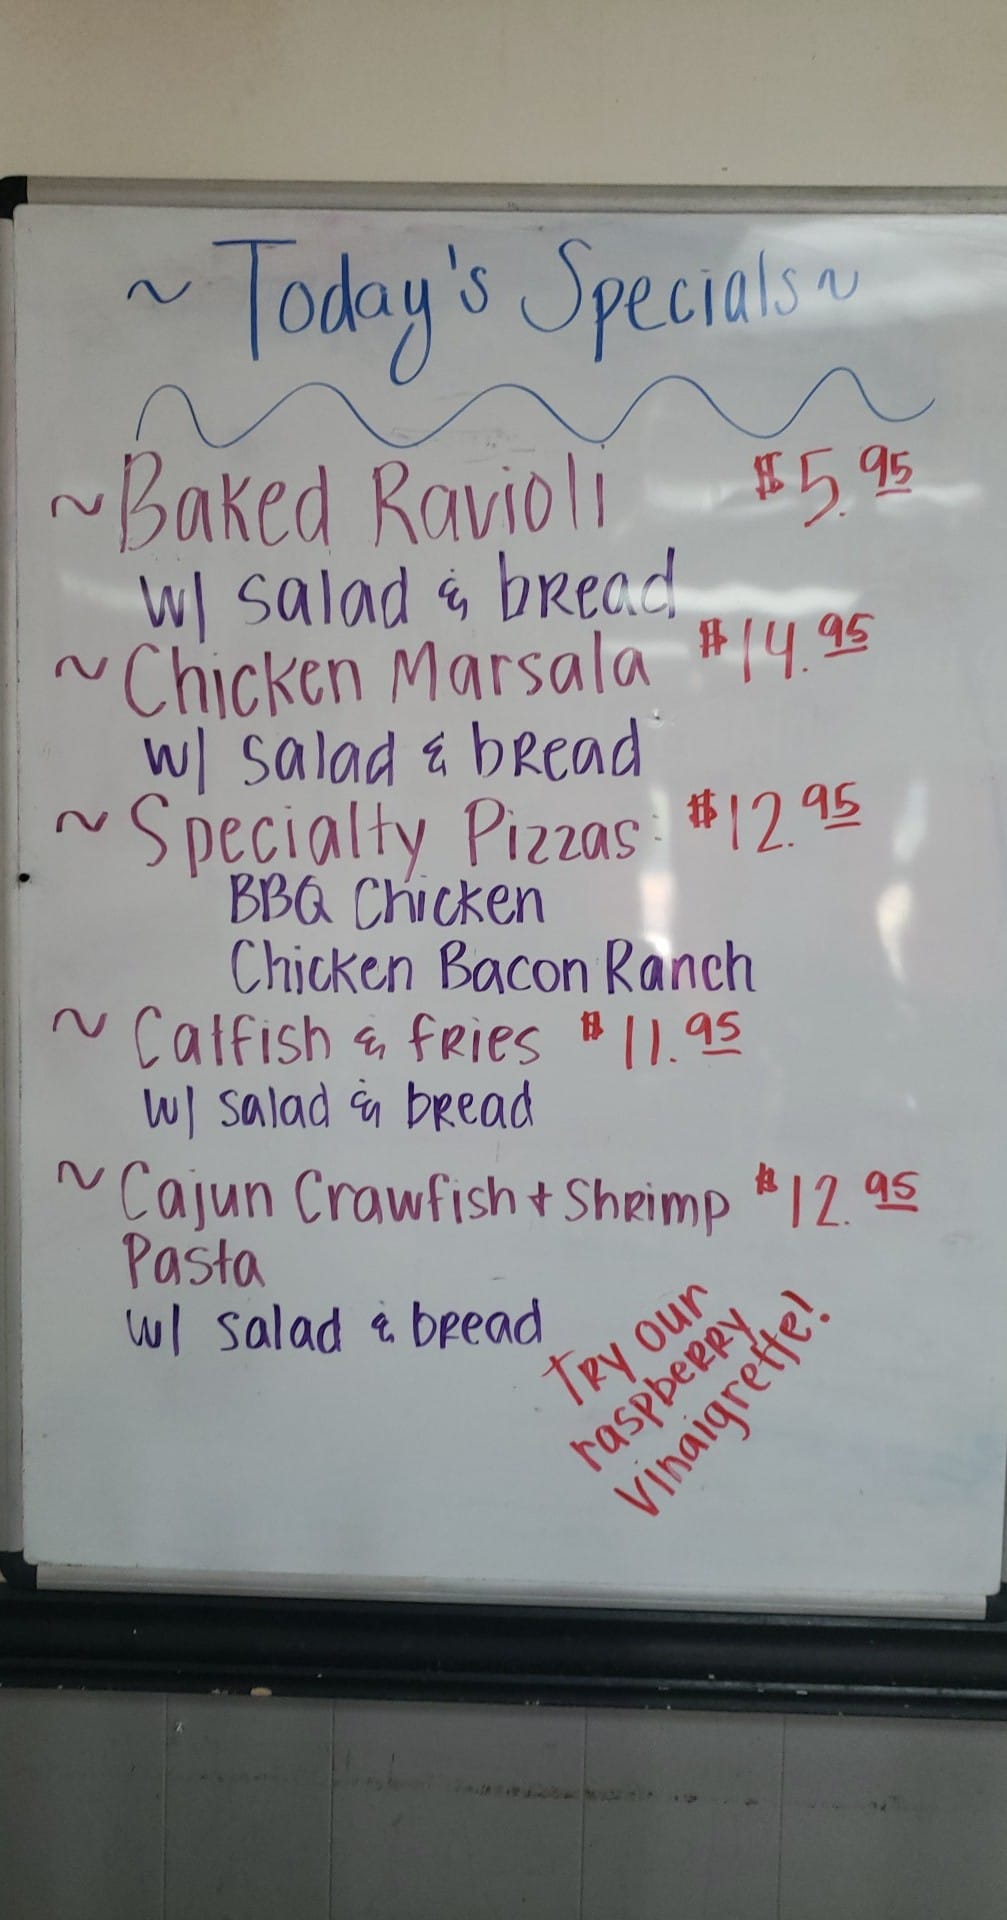 ~ Today's Specials ~
~ Baked Ravioli $5.95
w/ salad & bread
~ Chicken Marsala $14.95
w/ salad & bread
~ Specialty Pizzas: $12.95
BBQ Chicken
Chicken Bacon Ranch
~ Catfish & fries $11.95
w/ salad & bread
~ Cajun Crawfish + Shrimp $12.95
Pasta
w/ salad & bread
Try our
raspberry
vinaigrette!